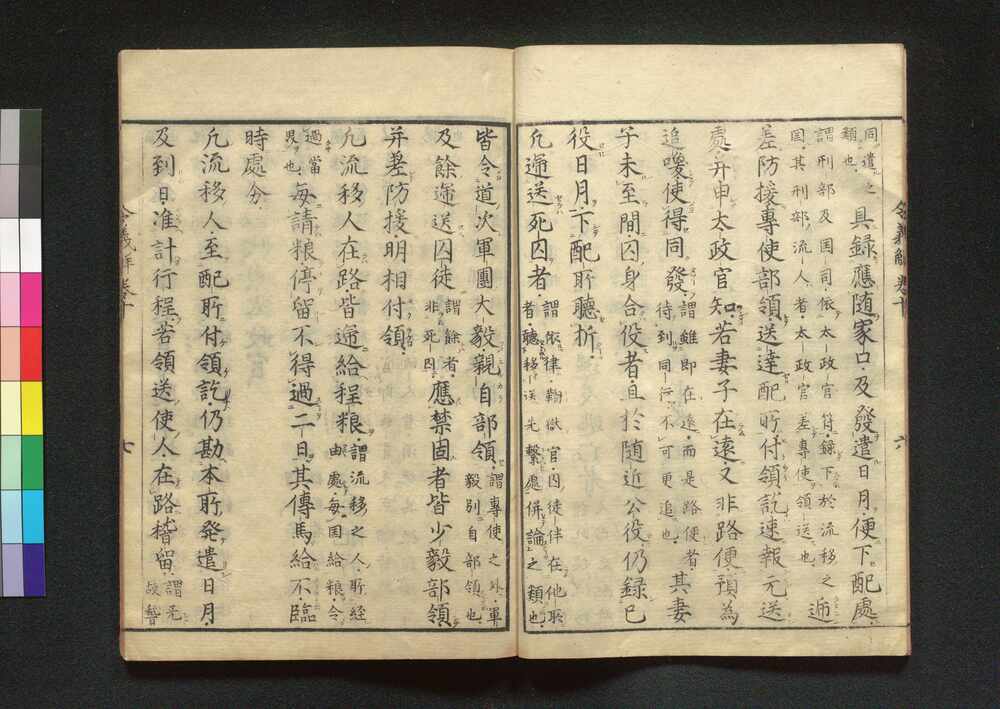 同遣之
類也 具録應随家口及發遣日月便下配處
謂刑部及国司依太政官符録下於流移之
国其刑部流人者太政官差專使領送也 逓
差防援專使部領送達配所付領訖速報元送
處并申太政官知若妻子在遠又非路便預為
追喚使得同發 謂雖即在遠而是路便者
待到同行不可更追也 其妻
子未至間囚身合役者且於随近公役仍録已
役日月下配所聽折
凡逓送死囚者 謂依律鞫獄官囚徒伴在他所
者聽移送先繋處併論之類也
皆令道次軍團大毅親自部領 謂專使之外軍
毅別自部領也
及餘逓送囚徒 謂餘者
非死囚 應禁固者皆少毅部領
并差防援明相付領
凡流移人在路皆逓給程粮 謂流移之人所経
由處毎国給粮令
過當
界也 毎請粮停留不得過二日其傳馬給不臨
時處分
凡流移人至配所付領訖仍勘本所發遣日月
及到日准計行程若領送使人在路稽留 謂无
故稽
令義解 巻十 六
令義解 巻十 七